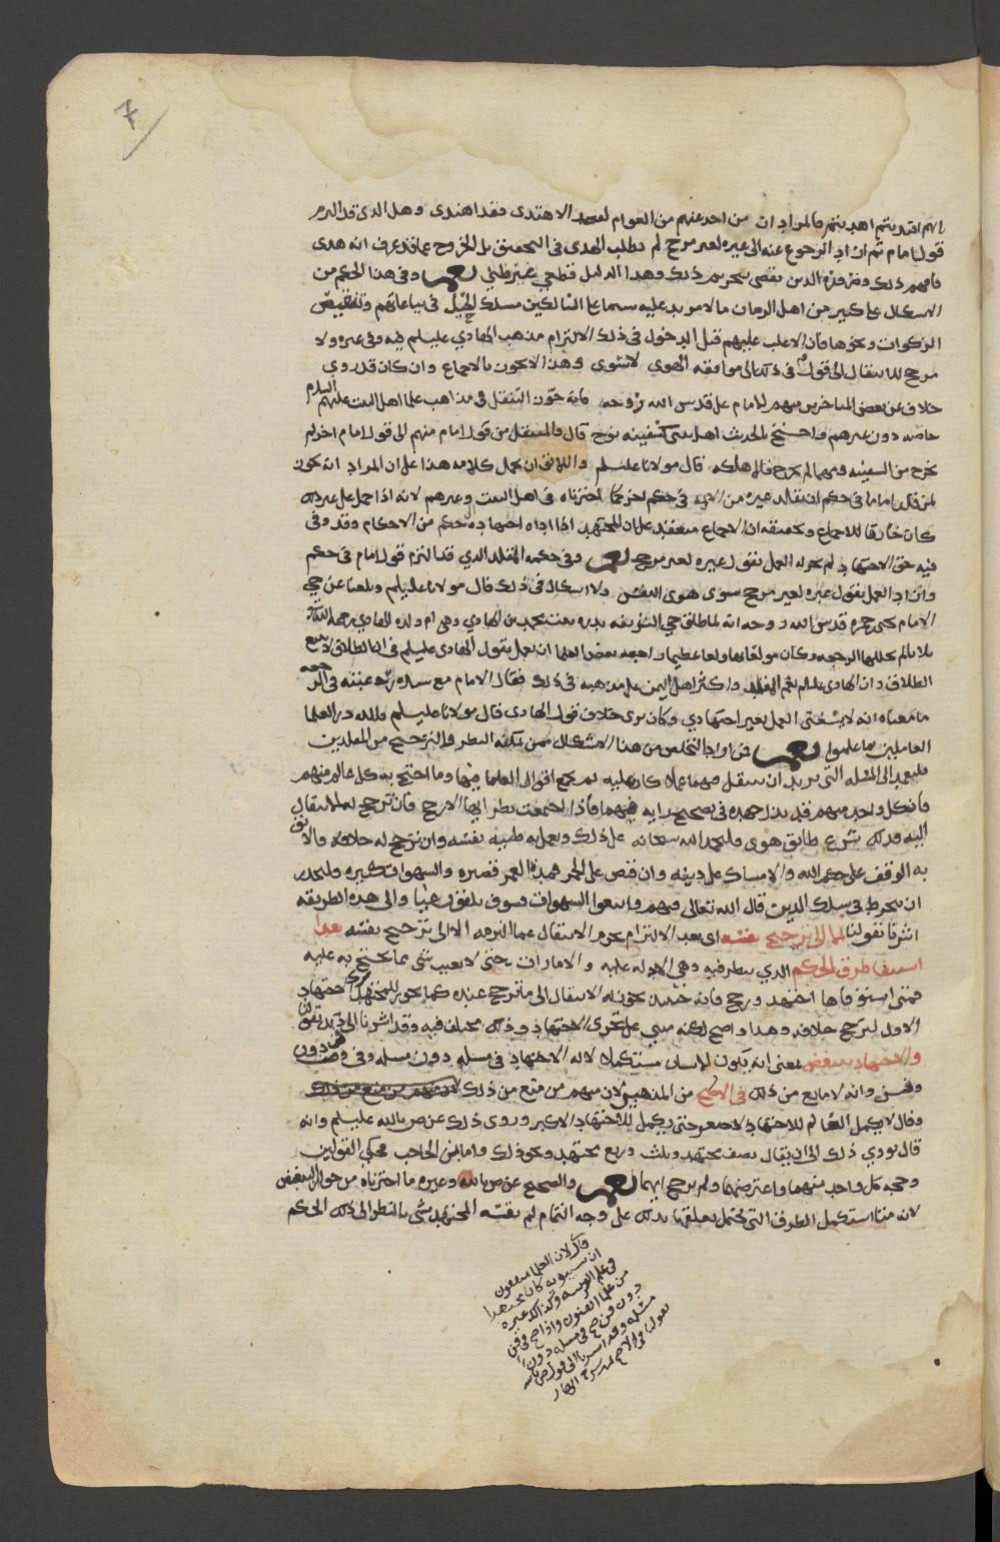 7
بايهم اقتديتم اهتديتم فالمراد ان من اخذ عنهم من العوام لقصد الاهتدى فقد اهتدى وهل الذي قد التزم
قول امام ثم اراد الرجوع عنه الى غيره لغير مرجح لم يطلب الهدى في التحقيق بل الخروج عما قد عرف انه هدى
فافهم ذلك وضرورة الدين تقضي بتحريم ذلك وهذا الدليل قطعي غير ظني نعم وفي هذا الحكم من
الاشكال على كثير من اهل الزمان ما لا مزيد عليه سيما على السالكين مسلك الحيل في بياعاتهم وتقبيض
الزكوات ونحوها فان الاغلب عليهم قبل الدخول في ذلك الالتزام مذهب الهادي عليلم فيه وفي غيره ولا
مرجح للانتقال الى قول في ذلك الى موافقه الهوى لا سوى وهذا لا يكون بالاجماع وان كان قد روي
خلاف عن بعض المتاخرين منهم الامام علي قدس الله روحه فانه جوز التنقل في مذاهب علما اهل البيت عليهم السلام
خاصه دون غيرهم واحتج بالحديث اهل بيتي كسفينه نوح قال والمنتقل من قول امام منهم الى قول امام اخر لم
يخرج من السفينه ومهما لم يخرج فلا هلكه قال مولانا عليلم واللائق ان يحمل كلامه هذا على ان المراد انه يكون
لمن قلد اماما في حكم ان يقلد غيره من الايمه في حكم اخر كما اخترناه في اهل البيت وغيرهم لانه اذا حمل على غير ذلك
كان خارقا للاجماع وتحقيقه ان الاجماع منعقد على ان المجتهد اذا اداه اجتهاده الى حكم من الاحكام وقد وفى
فيه حق الاجتهاد لم يجز له العمل بقول غيره لغير مرجح نعم وفي حكمه المقلد الذي قد التزم قول امام في حكم
واراد العمل بقول غيره لغير مرجح سوى هوى النفس ولا اشكال في ذلك قال مولانا عليلم وبلغنا عن حي
الامام يحيى بن حمزه قدس الله روحه انه لما طلق حي الشريفه بدره بنت محمد بن الهادي وهي ام ولده الهادي رحمه الله
ثلاثا لم يتخللها الرجعه وكان مولعا بها ولعا عظيما راجعه بعض العلما ان يعمل بقول الهادي عليلم في ان الطلاق لا يتبع
الطلاق وان الهادي عليلم نعم المقلد واكثر اهل اليمن على مذهبه في ذلك فقال الامام مع شده رغبته في الرجعه
ما معناه انه لا يشتفى العمل بغير اجتهادي وكان يرى خلاف قول الهادي قال مولانا عليلم فلله در العلما
العاملين بما علموا نعم فمن اراد التخلص من هذا الاشكال ممن يمكنه النظر والترجيح من المقلدين
فليعمد الى المسله التي يريد ان ينتقل فيها عما كان عليه ثم يجمع اقوال العلما فيها وما احتج به كل عالم منهم
فان كل واحد منهم قد بذل جهده في تصحيح رايه فيها فاذا اجتمعت نظر ايها الارجح فان ترجح له الانتقال
اليه فذلك شرع طابق هوى فليحمد الله سبحانه على ذلك ويعمل به طيبه نفسه وان ترجح له خلافه والاليق
به الوقف على حكم الله والامساك على دينه وان قبض على الجمر فمده العمر قصيره والشهوات كثيره وليحذر
ان ينخرط في سلك الذين قال الله تعالى فيهم واتبعوا الشهوات فسوف يلقون غيا والى هذه الطريقه
اشرنا بقولنا الا الى ترجيح نفسه اي بعد الالتزام يحرم الانتقال عما التزمه الا الى ترجيح نفسه بعد
استيفا طرق الحكم الذي ينظر فيه وهي الادله عليه والامارات حتى لا يغيب شي مما يحتج به عليه
فمتى استوفاها اجتهد ورجح فانه حينئذ يجوز له الانتقال الى ما ترجح عنده كما يجوز للمجتهد ترك اجتهاده
الاول لترجح خلافه وهذا واضح لكنه مبني على تجزي الاجتهاد وذلك مختلف فيه وقد اشرنا الى ذلك بقولنا
والاجتهاد يتبعض بمعنى انه يكون الانسان مستكملا لالة الاجتهاد في مسله دون مسله وفي فن دون
وفن وانه لا مانع من ذلك في الاصح من المذهبين لان منهم من منع من ذلك
وقال لا يكمل العالم للاجتهاد الاصغر حتى يكمل للاجتهاد الاكبر وروى ذلك عن ص بالله عليلم وانه
قال يودي ذلك الى ان يقال نصف مجتهد وثلث وربع مجتهد ونحو ذلك واما ابن الحاجب فحكى القولين
وحجه كل واحد منهما واعترضها ولم يرجح ايهما نعم والصحيح عن ص بالله وغيره ما اخترناه من جواز التبعض
لان متى استكمل الطرق التي يحتمل تعلقها بذلك على وجه التمام لم يفته المجتهد بشي بالنظر الى ذلك الحكم
قال لان العلما متفقون
ان سيبويه كان مجتهدا
في علم العربيه وكذلك غيره
من علما الفنون واذا صح في فن
دون فن صح في مسله دون
مسله وقد اشرنا الى قول ص بالله
بقولنا في الاصح تمت شرح ازهار